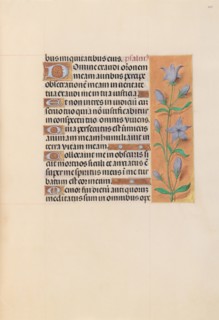 bus iniquitatibus eius. psalmus
Domine exaudi orationem
meam auribus percipe
obsecrationem meam in veritate
tua exaudi me in tua iusticia
Et non intres in iudiciū cum
servo tuo quia nō iustificabitur
in conspectu tuo omnis vivens.
Quia persecutus est inimicus
animam meam humiliavit in
terra vitam meam.
Collocavit me in obscuris si
cut mortuos seculi et anxiatus ē
super me spiritus meus in me tur
batum est cor meum.
Memor fui dierū antiquorū
meditatus sum in omnibus ope